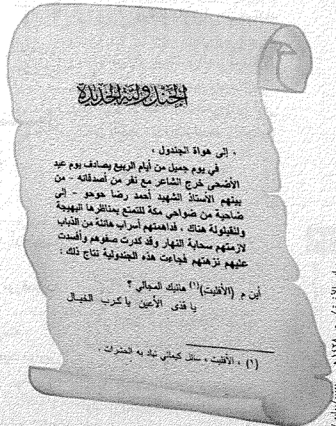 الجندولية الجديدة
، إلى هواة الجندول ،
في يوم جميل من أيام الربيع يصادف يوم عيد
الأضحى خرج الشاعر مع نفر من أصدقائه - من
بينهم الأستاذ الشهيد أحمد رضا حوحو - إلى
ضاحية من ضواحي مكة للتمتع بمناظرها البهيجة
وللقيلولة هناك ، فداهمتهم أسراب هائلة من الذباب
لازمتهم سحابة النهار وقد كدرت صفوهم وأفسدت
عليهم نزهتهم فجاءت هذه الجندولية نتاج ذلك :
أين م (الأفليت)(١) هاتيك المجالي ؟
يا قذى الأعين يا كرب الخيال
(١) ، الأفليت ، سائل كيمائي تباد به الحشرات .